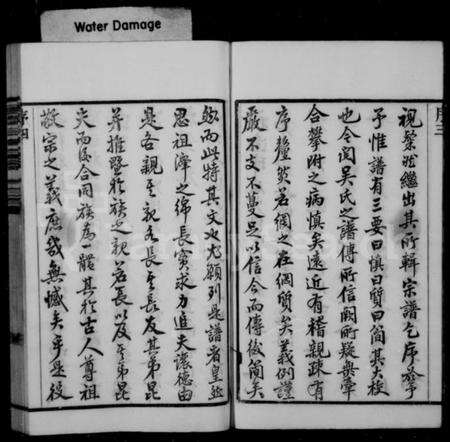 Water Damage
序三
視槩狀繼出其所輯宗譜乞序於
予惟譜有三要曰慎曰質曰簡其大較
也今閱吳氏之譜傳所信闕所疑無牽
合攀附之病慎矣遠近有稽親疎有
序釐然若綱之在網質矣義例謹
嚴不支不蔓足以信今而傳後簡矣
序四
然而此特其文也尤願列是譜者皇然
思祖澤之綿長實求力追夫漾德由
是各親其親各長其長及其弟昆
并推暨於族之親若長以及其弟昆
夫而後合闔族為一體其於古人尊祖
敬宗之義庶幾無憾矣乎是役